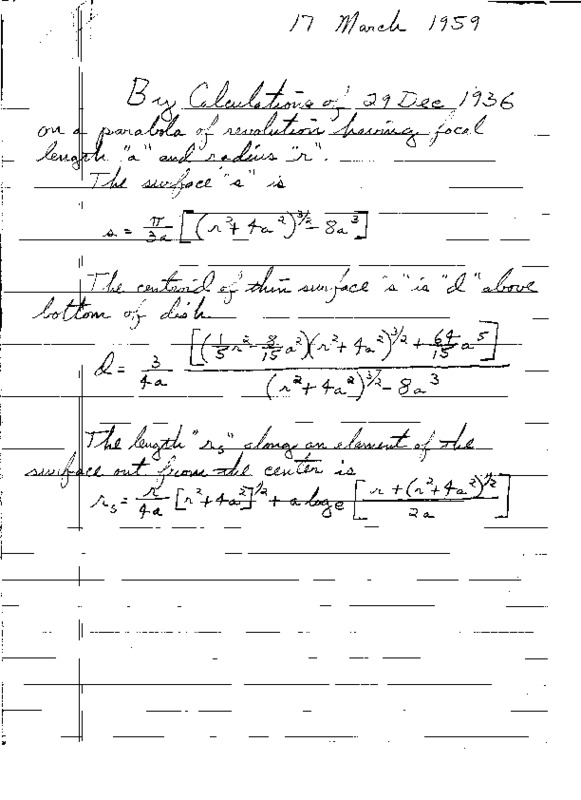 17 March 1959
By Calculations of 29 Dec 1936
on a parabola of revolution having focal
length "a" and radius "r".
The surface "s" is
s = π/3a [(r² + 4a²)^3/2 - 8a³]
The centroid of this surface "s" is "d" above
bottom of dish
d = 3/4a [(1/5 r² - 8/15 a²)(r² + 4a²)^3/2 + 64/15 a⁵] / (r² + 4a²)^3/2 - 8a³
The length "r_s" along an element of the
surface out from the center is
r_s = r/4a [r² + 4a²]^1/2 + a log e [r + (r² + 4a²)^1/2 / 2a]